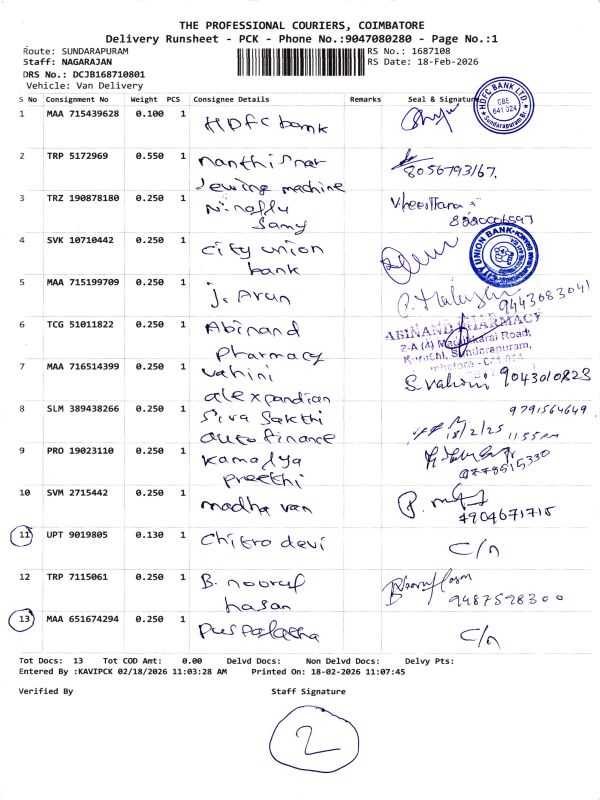 THE PROFESSIONAL COURIERS, COIMBATORE
Delivery Runsheet - PCK - Phone No.:9047080280 - Page No.:1
Route: SUNDARAPURAM RS No.: 1687108
Staff: NAGARAJAN RS Date: 18-Feb-2026
DRS No.: DCJB168710801
Vehicle: Van Delivery
S No Consignment No Weight PCS Consignee Details Remarks Seal & Signature
HDFC BANK LTD.
CBE
641 024
Sundarapuram Br.
1 MAA 715439628 0.100 1 HDFC bank
2 TRP 5172969 0.550 1 nanthisnar
8056793167.
sewing machine
3 TRZ 190878180 0.250 1
samy
4 SVK 10710442 0.250 1 city union
bank
CITY UNION BANK
5 MAA 715199709 0.250 1 J. Arun
9443083041
6 TCG 51011822 0.250 1 Abinand
pharmacy
ABINAND PHARMACY
2-A (4) Madukkarai Road,
Kurichi, Sundarapuram,
7 MAA 716514399 0.250 1 vahini
S. Vahini 9043010823
alexpandian
8 SLM 389438266 0.250 1 Siva Sakthi
9791564649
auto finance
18/2/25
11 55 AM
9 PRO 19023110 0.250 1 kamalya
preethi
10 SVM 2715442 0.250 1 madha van
11 UPT 9019805 0.130 1 Chitra devi C/n
12 TRP 7115061 0.250 1 B. nooraf
hasan
9487528300
13 MAA 651674294 0.250 1 C/n
Tot Docs: 13 Tot COD Amt: 0.00 Delvd Docs: Non Delvd Docs: Delvy Pts:
Entered By :KAVIPCK 02/18/2026 11:03:28 AM Printed On: 18-02-2026 11:07:45
Verified By Staff Signature
2